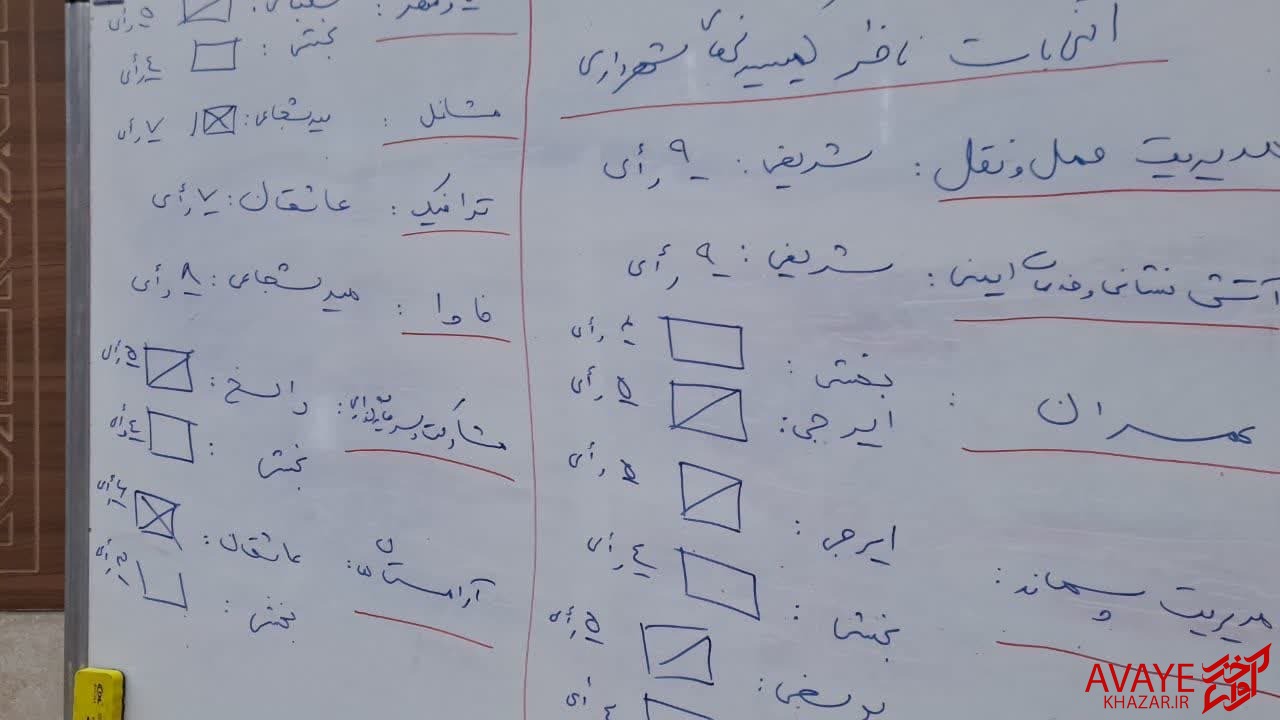 انتخابات ناظر کمیسیونهای شهرداری
مدیریت حمل و نقل : شریفی : ۹ رأی
آتش نشانی و خدمات ایمنی : شریفی : ۹ رأی
عمران :
بخشی : ٤ رأی
ایرجی : ۵ رأی
مدیریت پسماند :
ایرجی : ۵ رأی
بخشی : ٤ رأی
۵ رأی
٤ رأی
۵ رأی
بخشی : ٤ رأی
مشاغل : میرشجاعی : ۷ رأی
ترافیک : عاشقان : ۷ رأی
فاوا : میرشجاعی : ۸ رأی
راسخ : ۵ رأی
بخشی : ٤ رأی
آرامستان : عاشقان : ۶ رأی
بخشی : ۳ رأی
AVAYE
KHAZAR.IR
آوای خزر